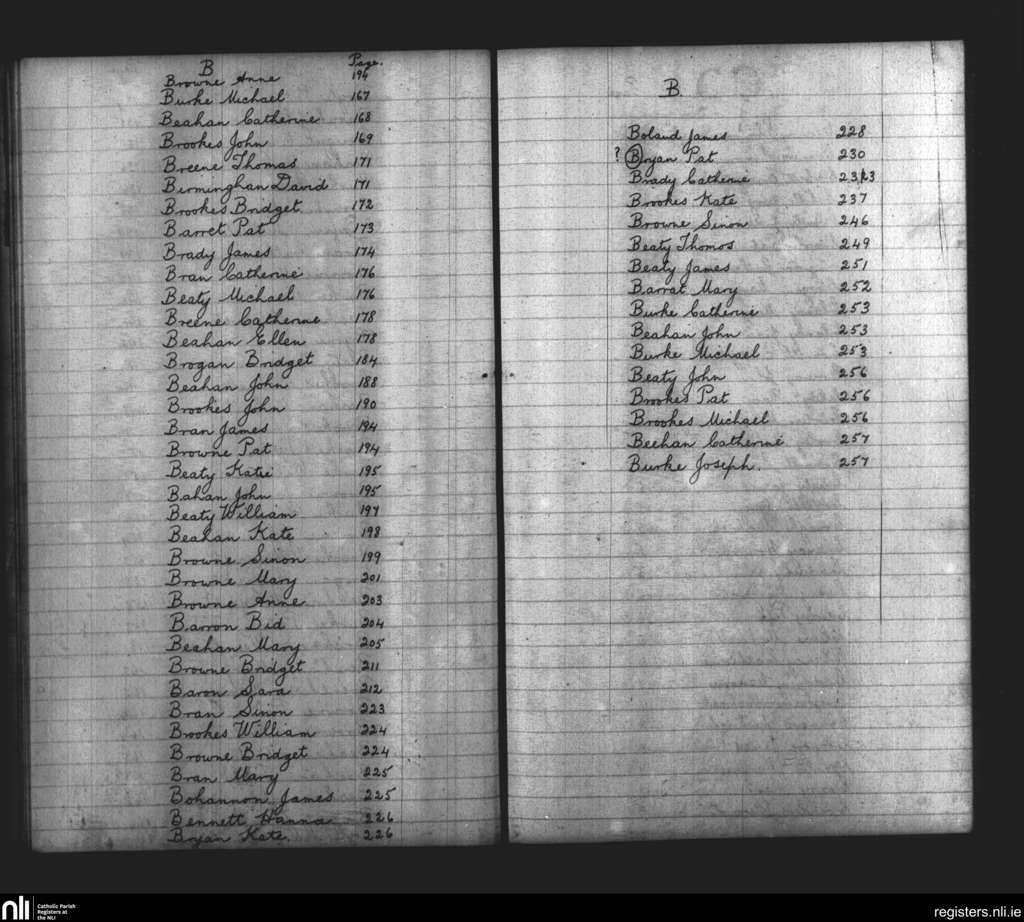 B Page.
Browne Anne 194
Burke Michael 167
Beahan Catherine 168
Brookes John 169
Breene Thomas 171
Birminghan David 171
Brookes Bridget 172
Barret Pat 173
Brady James 174
Bran Catherine 176
Beaty Michael 176
Breene Catherine 178
Beahan Ellen 178
Brogan Bridget 184
Beahan John 188
Brookes John 190
Bran James 194
Browne Pat 194
Beaty Katie 195
Bahan John 195
Beaty William 197
Beahan Kate 198
Browne Sinon 199
Browne Mary 201
Browne Anne 203
Barron Bid 204
Beahan Mary 205
Browne Bridget 211
Baron Sara 212
Bran Sinon 223
Brookes William 224
Browne Bridget 224
Bran Mary 225
Bohannon James 225
Bennett Hanna 226
Bryan Kate. 226
B.
Boland James 228
? Bryan Pat 230
Brady Catherine
Brookes Kate 237
Browne Sinon 246
Beaty Thomos 249
Beaty James 251
Barrat Mary 252
Burke Catherine 253
Beahan John 253
Burke Michael 253
Beaty John 256
Brookes Pat 256
Brookes Michael 256
Beehan Catherine 257
Burke Joseph. 257
nli Catholic Parish
Registers at
the NLI
registers.nli.ie